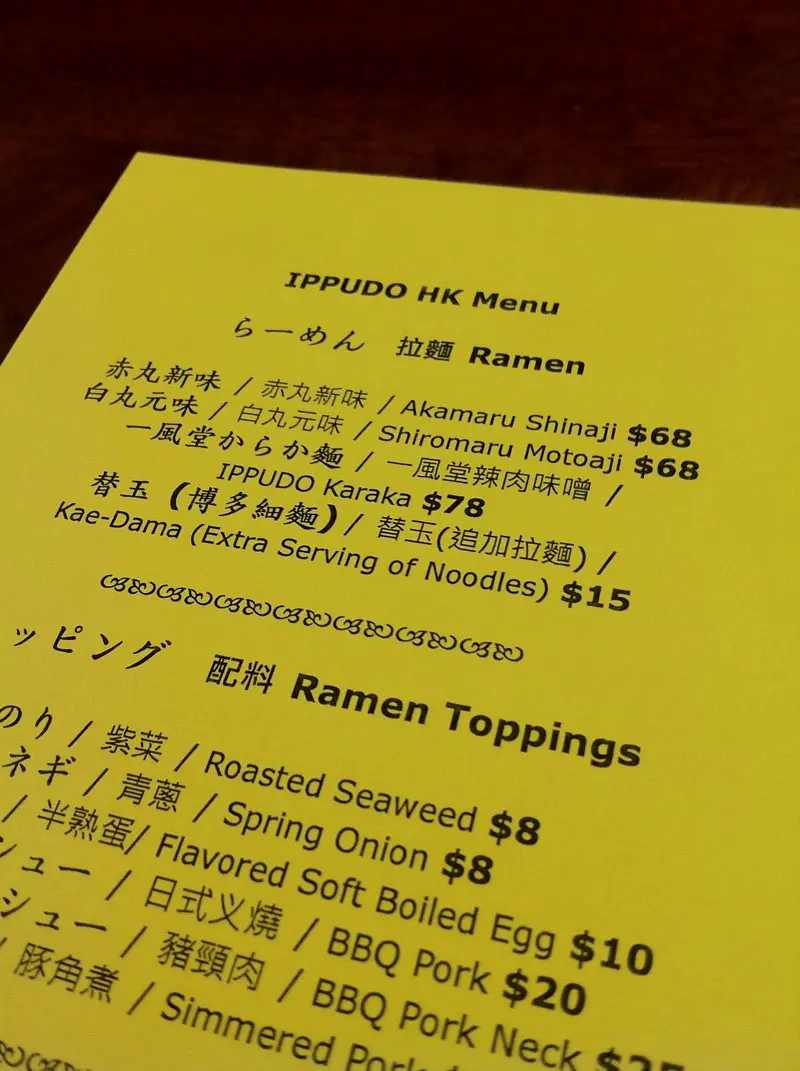 IPPUDO HK Menu
らーめん 拉麵 Ramen
赤丸新味 / 赤丸新味 / Akamaru Shinaji $68
白丸元味 / 白丸元味 / Shiromaru Motoaji $68
一風堂からか麵 / 一風堂辣肉味噌 /
IPPUDO Karaka $78
替玉 (博多細麵) / 替玉(追加拉麵) /
Kae-Dama (Extra Serving of Noodles) $15
ッピング 配料 Ramen Toppings
のり / 紫菜 / Roasted Seaweed $8
ネギ / 青蔥 / Spring Onion $8
/ 半熟蛋/ Flavored Soft Boiled Egg $10
シュー / 日式义燒 / BBQ Pork $20
シュー / 豬頸肉 / BBQ Pork Neck $25
/ 豚角煮 / Simmered Pork